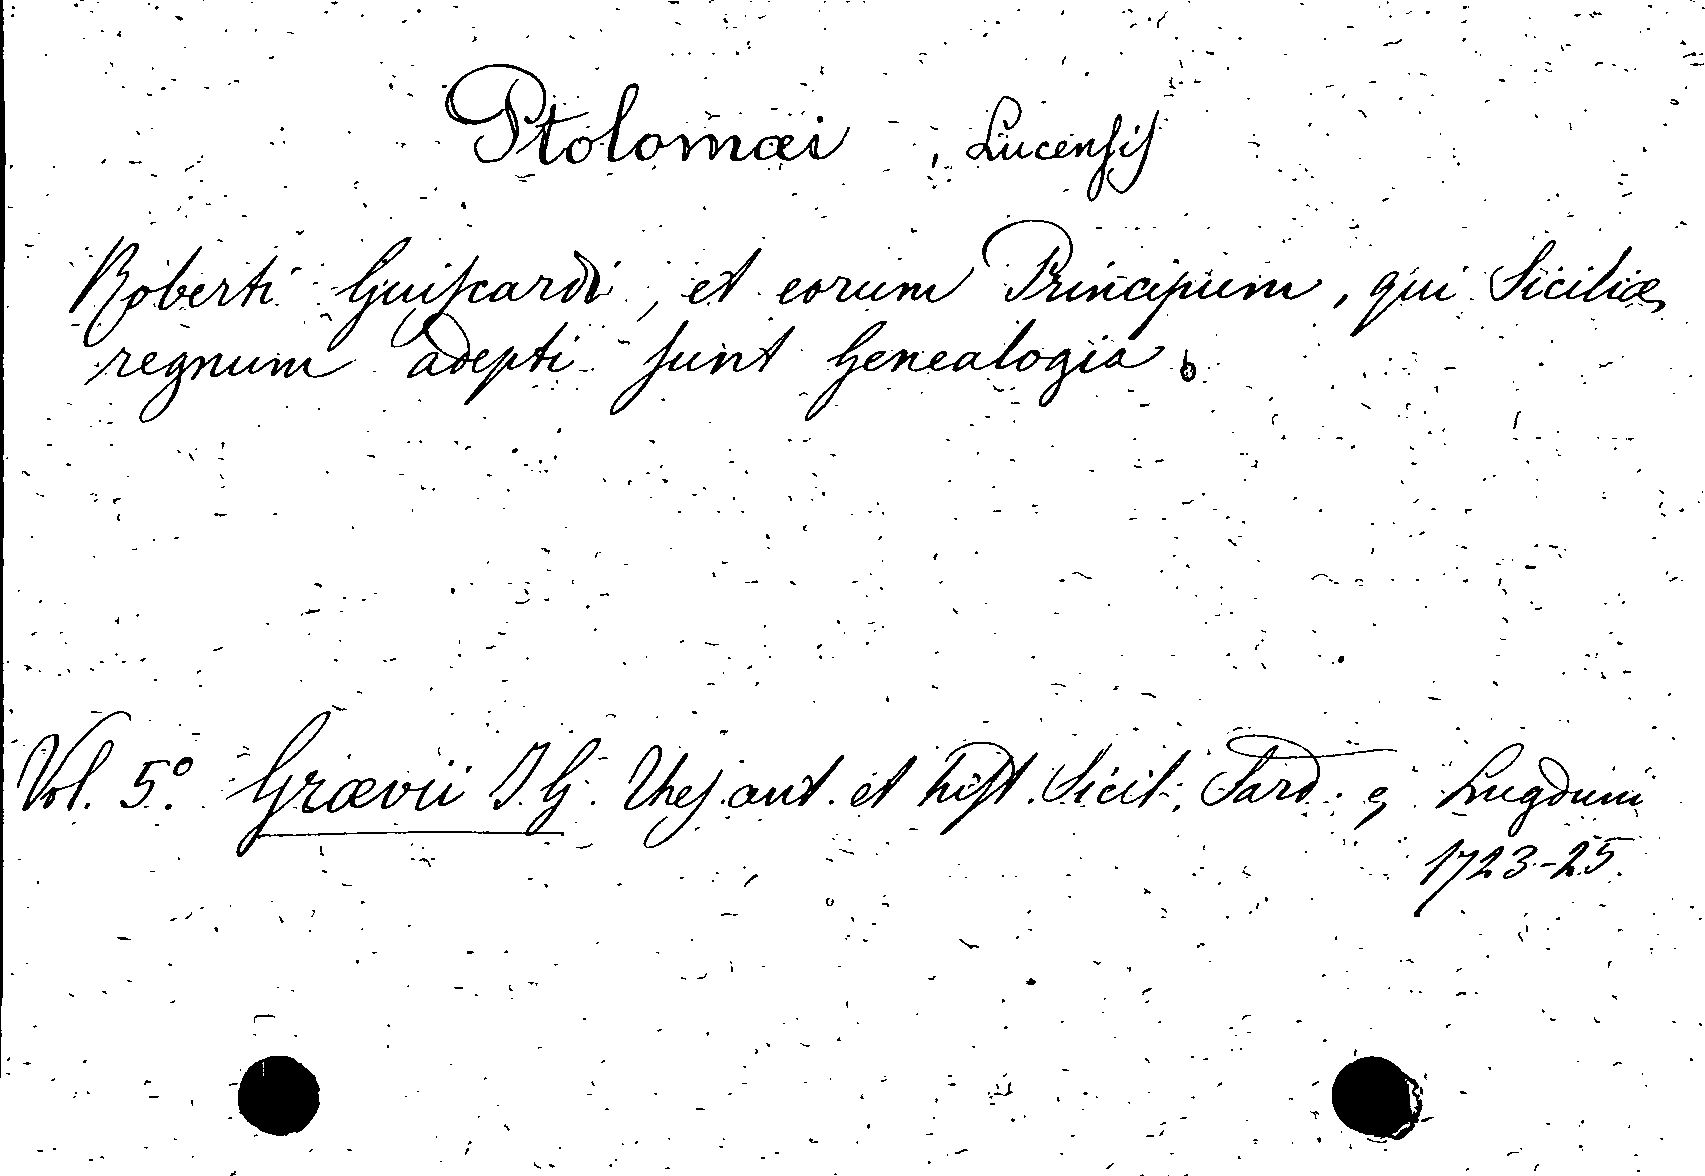 Ptolomæi , Lucensis
Roberti Guiscardi, et eorum Principum, qui Siciliæ
regnum adepti sunt Genealogia.
Vol. 5º. Grævii J. G. Thes. ant. et hist. Sicil. Sard. Lugduni
1723-25.